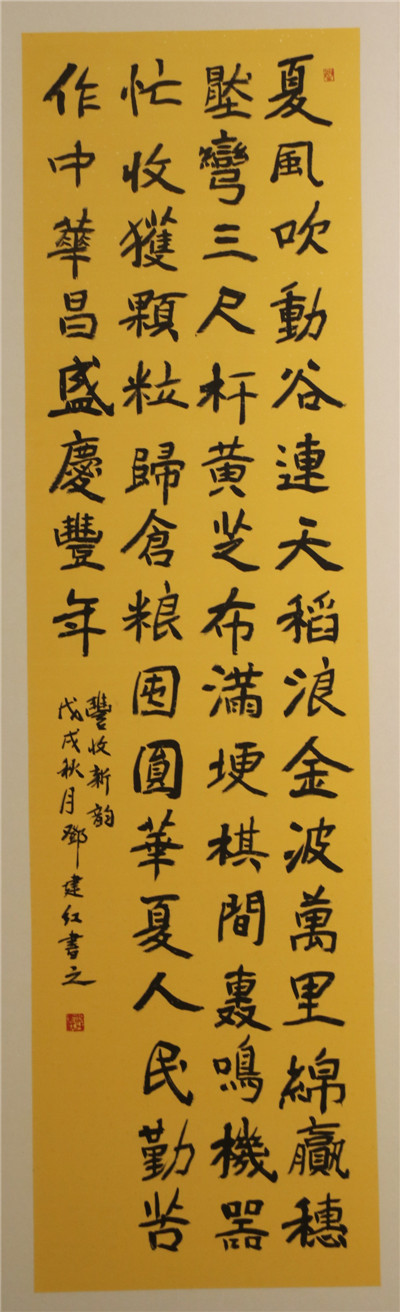 夏風吹動谷連天稻浪金波萬里綿贏穗
壓彎三尺杆黃芝布滿埂棋間轟鳴機器
忙收獲顆粒歸倉粮囤圓華夏人民勤苦
作中華昌盛慶豐年
豐收新韵
戊戌秋月鄧建紅書之